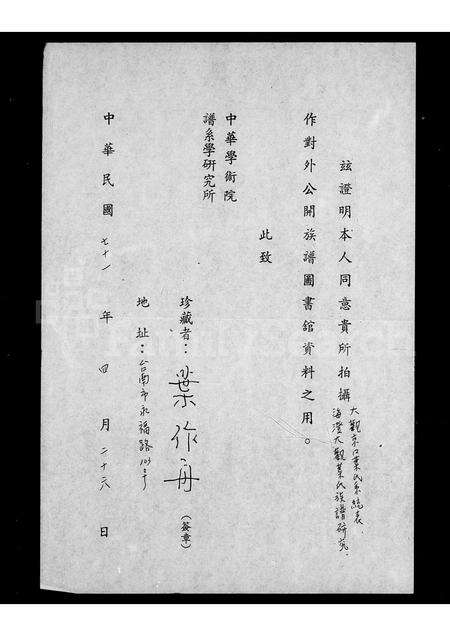 茲證明本人同意貴所拍攝大觀京口葉氏系統表.
海澄大觀葉氏族譜研究.
作對外公開族譜圖書館資料之用。
此致
中華學術院
譜系學研究所
珍藏者：葉作舟（簽章）
地址：台南市永福路
中華民國七十一年四月二十六日